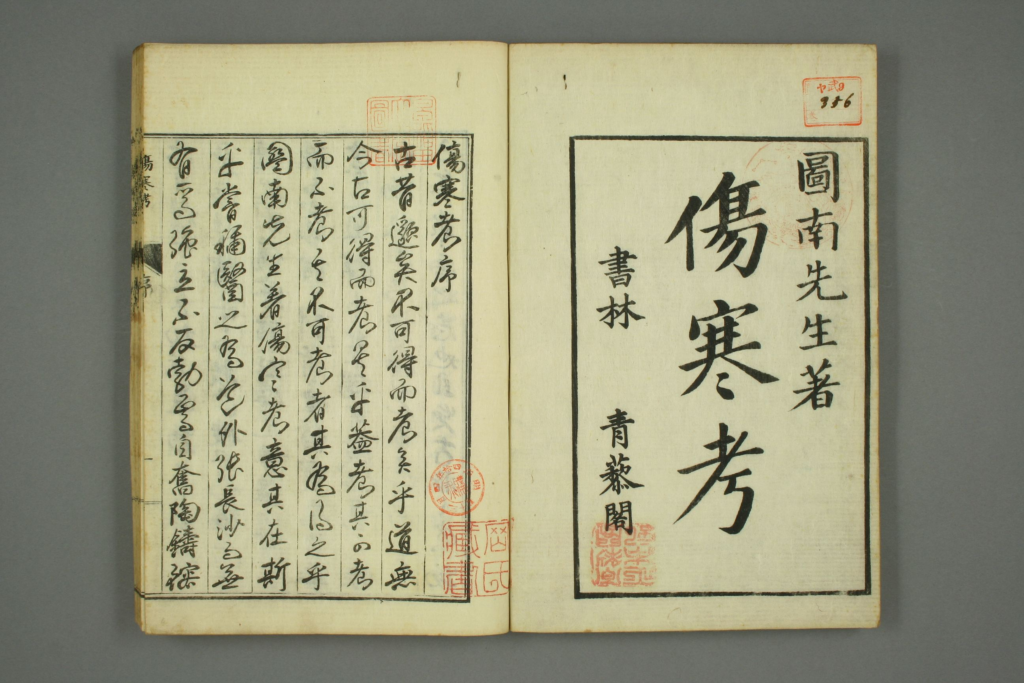 圖南先生著
傷寒考
書林 青藜閣
356
傷寒考序
古昔邈矣不可得而考矣乎道無
今古可得而考矣乎蓋考其可考
而不考其不可考者其為得之乎
圖南先生著傷寒考意其在斯
乎嘗稱醫之為道外張長沙而無
有焉強立不反勃焉自奮陶鑄
傷寒考
序